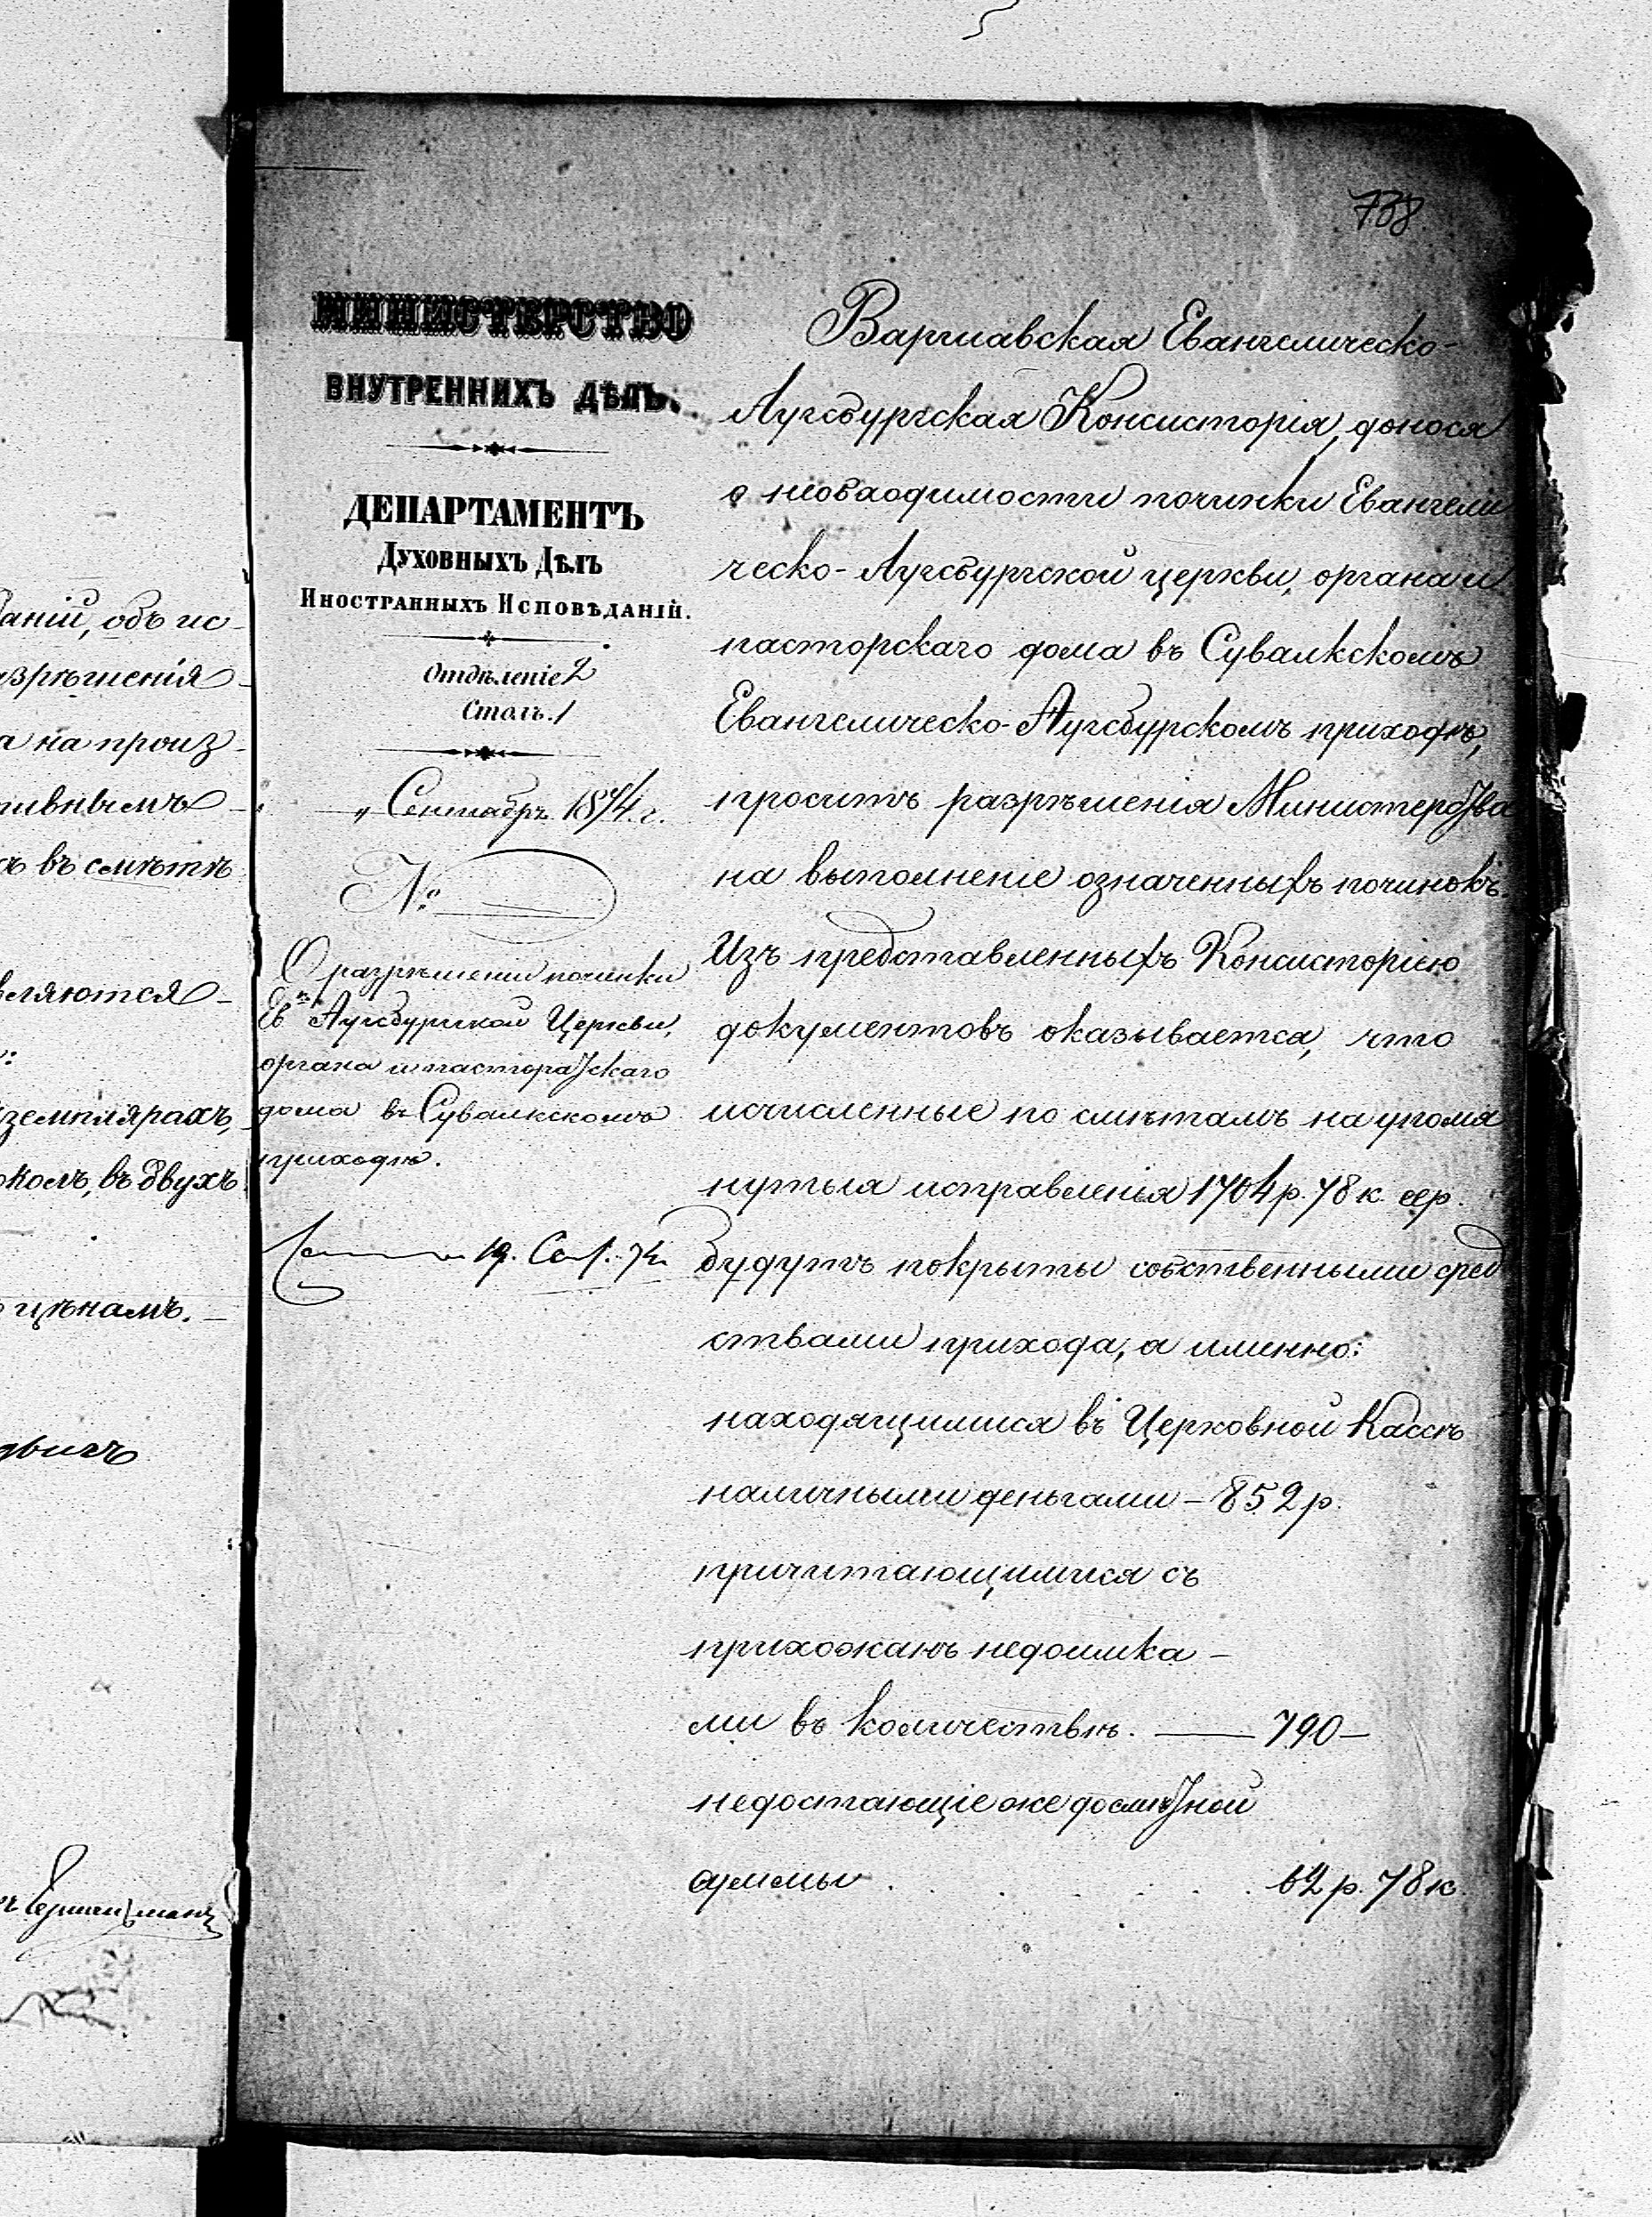 аній, объ ис-
азрѣшенія
а на произ-
тивнымъ
въ смѣтѣ
вляются
земплярахъ,
въ двухъ
цѣнамъ.
738.
МИНИСТЕРСТВО
ВНУТРЕННИХЪ ДѢЛЪ.
ДЕПАРТАМЕНТЪ
ДУХОВНЫХЪ ДѢЛЪ
ИНОСТРАННЫХЪ ИСПОВѢДАНІЙ.
Отдѣленіе 2
Столъ. 1
„ Сентябрь 1874 г.
№
О разрѣшеніи починки
Ев Аугсбургской Церкви,
органа и пасторскаго
дома въ Сувалкскомъ
приходѣ.
19. Сен. 74
Варшавская Евангелическо-
Аугсбургская Консисторія, донося
о необходимости починки Евангели
ческо-Аугсбургской церкви, органа и
пасторскаго дома въ Сувалкскомъ
Евангелическо-Аугсбурскомъ приходѣ,
проситъ разрѣшенія Министерства
на выполненіе означенныхъ починокъ.
Изъ представленныхъ Консисторіею
документовъ оказывается, что
исчисленные по смѣтамъ на упомя
нутыя исправленія 1704 р. 78 к. сер.
будутъ покрыты собственными сред
ствами прихода, а именно:
находящимися въ Церковной Кассѣ
наличными деньгами – 852 р.
причитающимися съ
прихожанъ недоимка-
ми въ количествѣ. — 790 –
недостающіе же до смѣтной
суммы . . . . . . 62 р. 78 к.